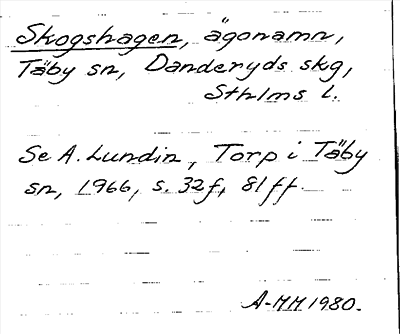 Skogshagen, ägonamn,
Täby sn, Danderyds skg,
Sthlms l.
Se A. Lundin, Torp i Täby
sn, 1966, s. 32f, 81ff.
A-MM 1980.